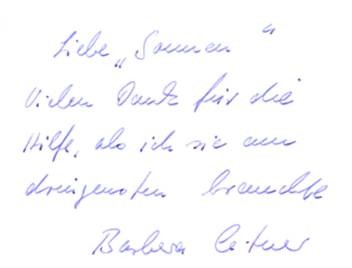 Liebe „Sonnen“
Vielen Dank für die
Hilfe, als ich sie am
dringensten brauchte
Barbara Leitner